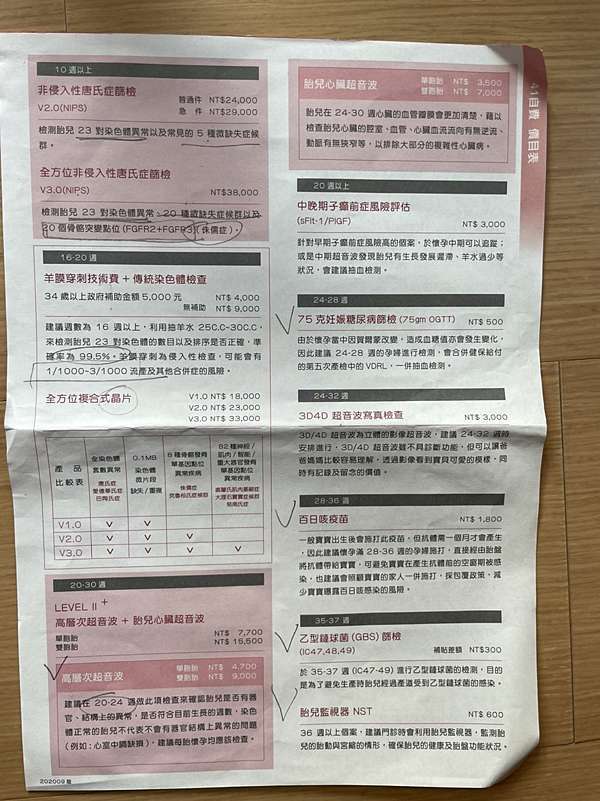 10 週以上
非侵入性唐氏症篩檢
V2.0(NIPS)
普通件 NT$24,000
急 件 NT$29,000
檢測胎兒 23 對染色體異常以及常見的 5 種微缺失症候
群。
全方位非侵入性唐氏症篩檢
V3.0(NIPS) NT$38,000
檢測胎兒 23 對染色體異常、20 種微缺失症候群以及
20 個骨骼突變點位(FGFR2+FGFR3)(侏儒症)。
16-20 週
羊膜穿刺技術費 + 傳統染色體檢查
34 歲以上政府補助金額 5,000 元 NT$ 4,000
無補助 NT$ 9,000
建議週數為 16 週以上，利用抽羊水 25C.C-30C.C，
來檢測胎兒 23 對染色體的數目以及排序是否正確，準
確率為 99.5%。羊膜穿刺為侵入性檢查，可能會有
1/1000~3/1000 流產及其他合併症的風險。
全方位複合式晶片
V1.0 NT$ 18,000
V2.0 NT$ 23,000
V3.0 NT$ 33,000
產 品
比較表
全染色體
套數異常
唐氏症
愛德華氏症
巴陶氏症
0.1MB
染色體
微片段
缺失 / 重複
8 種骨骼發育
單基因點位
異常疾病
侏儒症
克魯松氏症候群
82 種神經 /
肌肉 / 智能 /
重大器官發育
單基因點位
異常疾病
裘馨氏肌肉萎縮症
大理石寶寶症候群
努南氏症
V1.0 V V
V2.0 V V V
V3.0 V V V V
20-30 週
LEVEL II +
高層次超音波 + 胎兒心臟超音波
單胞胎 NT$ 7,700
雙胞胎 NT$ 15,500
高層次超音波
單胞胎 NT$ 4,700
雙胞胎 NT$ 9,000
建議在 20-24 週做此項檢查來確認胎兒是否有器
官、結構上的異常，是否符合目前生長的週數，染色
體正常的胎兒不代表不會有器官結構上異常的問題
(例如：心室中膈缺損)，建議每胎懷孕均應該檢查。
202009 版
41自費 價目表
胎兒心臟超音波
單胞胎 NT$ 3,500
雙胞胎 NT$ 7,000
胎兒在 24-30 週心臟的血管瓣膜會更加清楚，藉以
檢查胎兒心臟的腔室、血管、心臟血流流向有無逆流、
動脈有無狹窄等，以排除大部分的複雜性心臟病。
20 週以上
中晚期子癲前症風險評估
(sFlt-1/PlGF) NT$ 3,000
針對早期子癲前症風險高的個案，於懷孕中期可以追蹤；
或是中期超音波發現胎兒有生長發展遲滯、羊水過少等
狀況，會建議抽血檢測。
24-28 週
75 克妊娠糖尿病篩檢 (75gm OGTT) NT$ 500
由於懷孕當中因賀爾蒙改變，造成血糖值亦會發生變化，
因此建議 24-28 週的孕婦進行檢測，會合併健保給付
的第五次產檢中的 VDRL，一併抽血檢測。
24-32 週
3D4D 超音波寫真檢查 NT$ 3,000
3D/4D 超音波為立體的影像超音波，建議 24-32 週時
安排進行，3D/4D 超音波雖不具診斷功能，但可以讓爸
爸媽媽比較容易理解，透過影像看到寶貝可愛的模樣，同
時有記錄及留念的價值。
28-36 週
百日咳疫苗 NT$ 1,800
一般寶寶出生後會施打此疫苗，但抗體需一個月才會產生
，因此建議懷孕滿 28-36 週的孕婦施打，直接經由胎盤
將抗體帶給寶寶，可避免寶寶在產生抗體前的空窗期被感
染，也建議會照顧寶寶的家人一併施打，採包覆政策，減
少寶寶曝露百日咳感染的風險。
35-37 週
乙型鏈球菌 (GBS) 篩檢
(IC47,48,49) 補貼差額 NT$300
於 35-37 週 (IC47-49) 進行乙型鏈球菌的檢測，目的
是為了避免生產時胎兒經過產道受到乙型鏈球菌的感染。
胎兒監視器 NST NT$ 600
36 週以上個案，建議門診時會利用胎兒監視器，監測胎
兒的胎動與宮縮的情形，確保胎兒的健康及胎盤功能狀況。